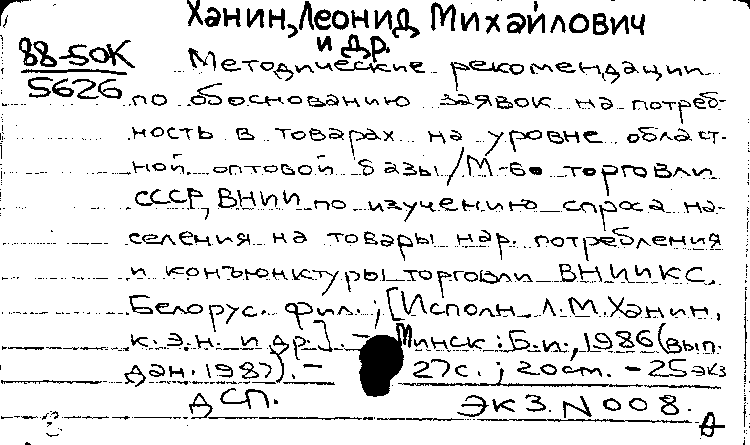 Ханин, Леонид Михайлович
и др.
88-50К
5626
Методические рекомендации
по обоснованию заявок на потреб-
ность в товарах на уровне област-
ной оптовой базы/М-во торговли
СССР, ВНИИ по изучению спроса на-
селения на товары нар. потребления
и конъюнктуры торговли ВНИИКС,
Белорус. фил.; [Исполн. Л.М.Ханин,
к.э.н. и др.]. - Минск: Б.и., 1986 (вып.
дан. 1987). - 27с.; 20см. - 25экз
ДСП. ЭКЗ. N 008.